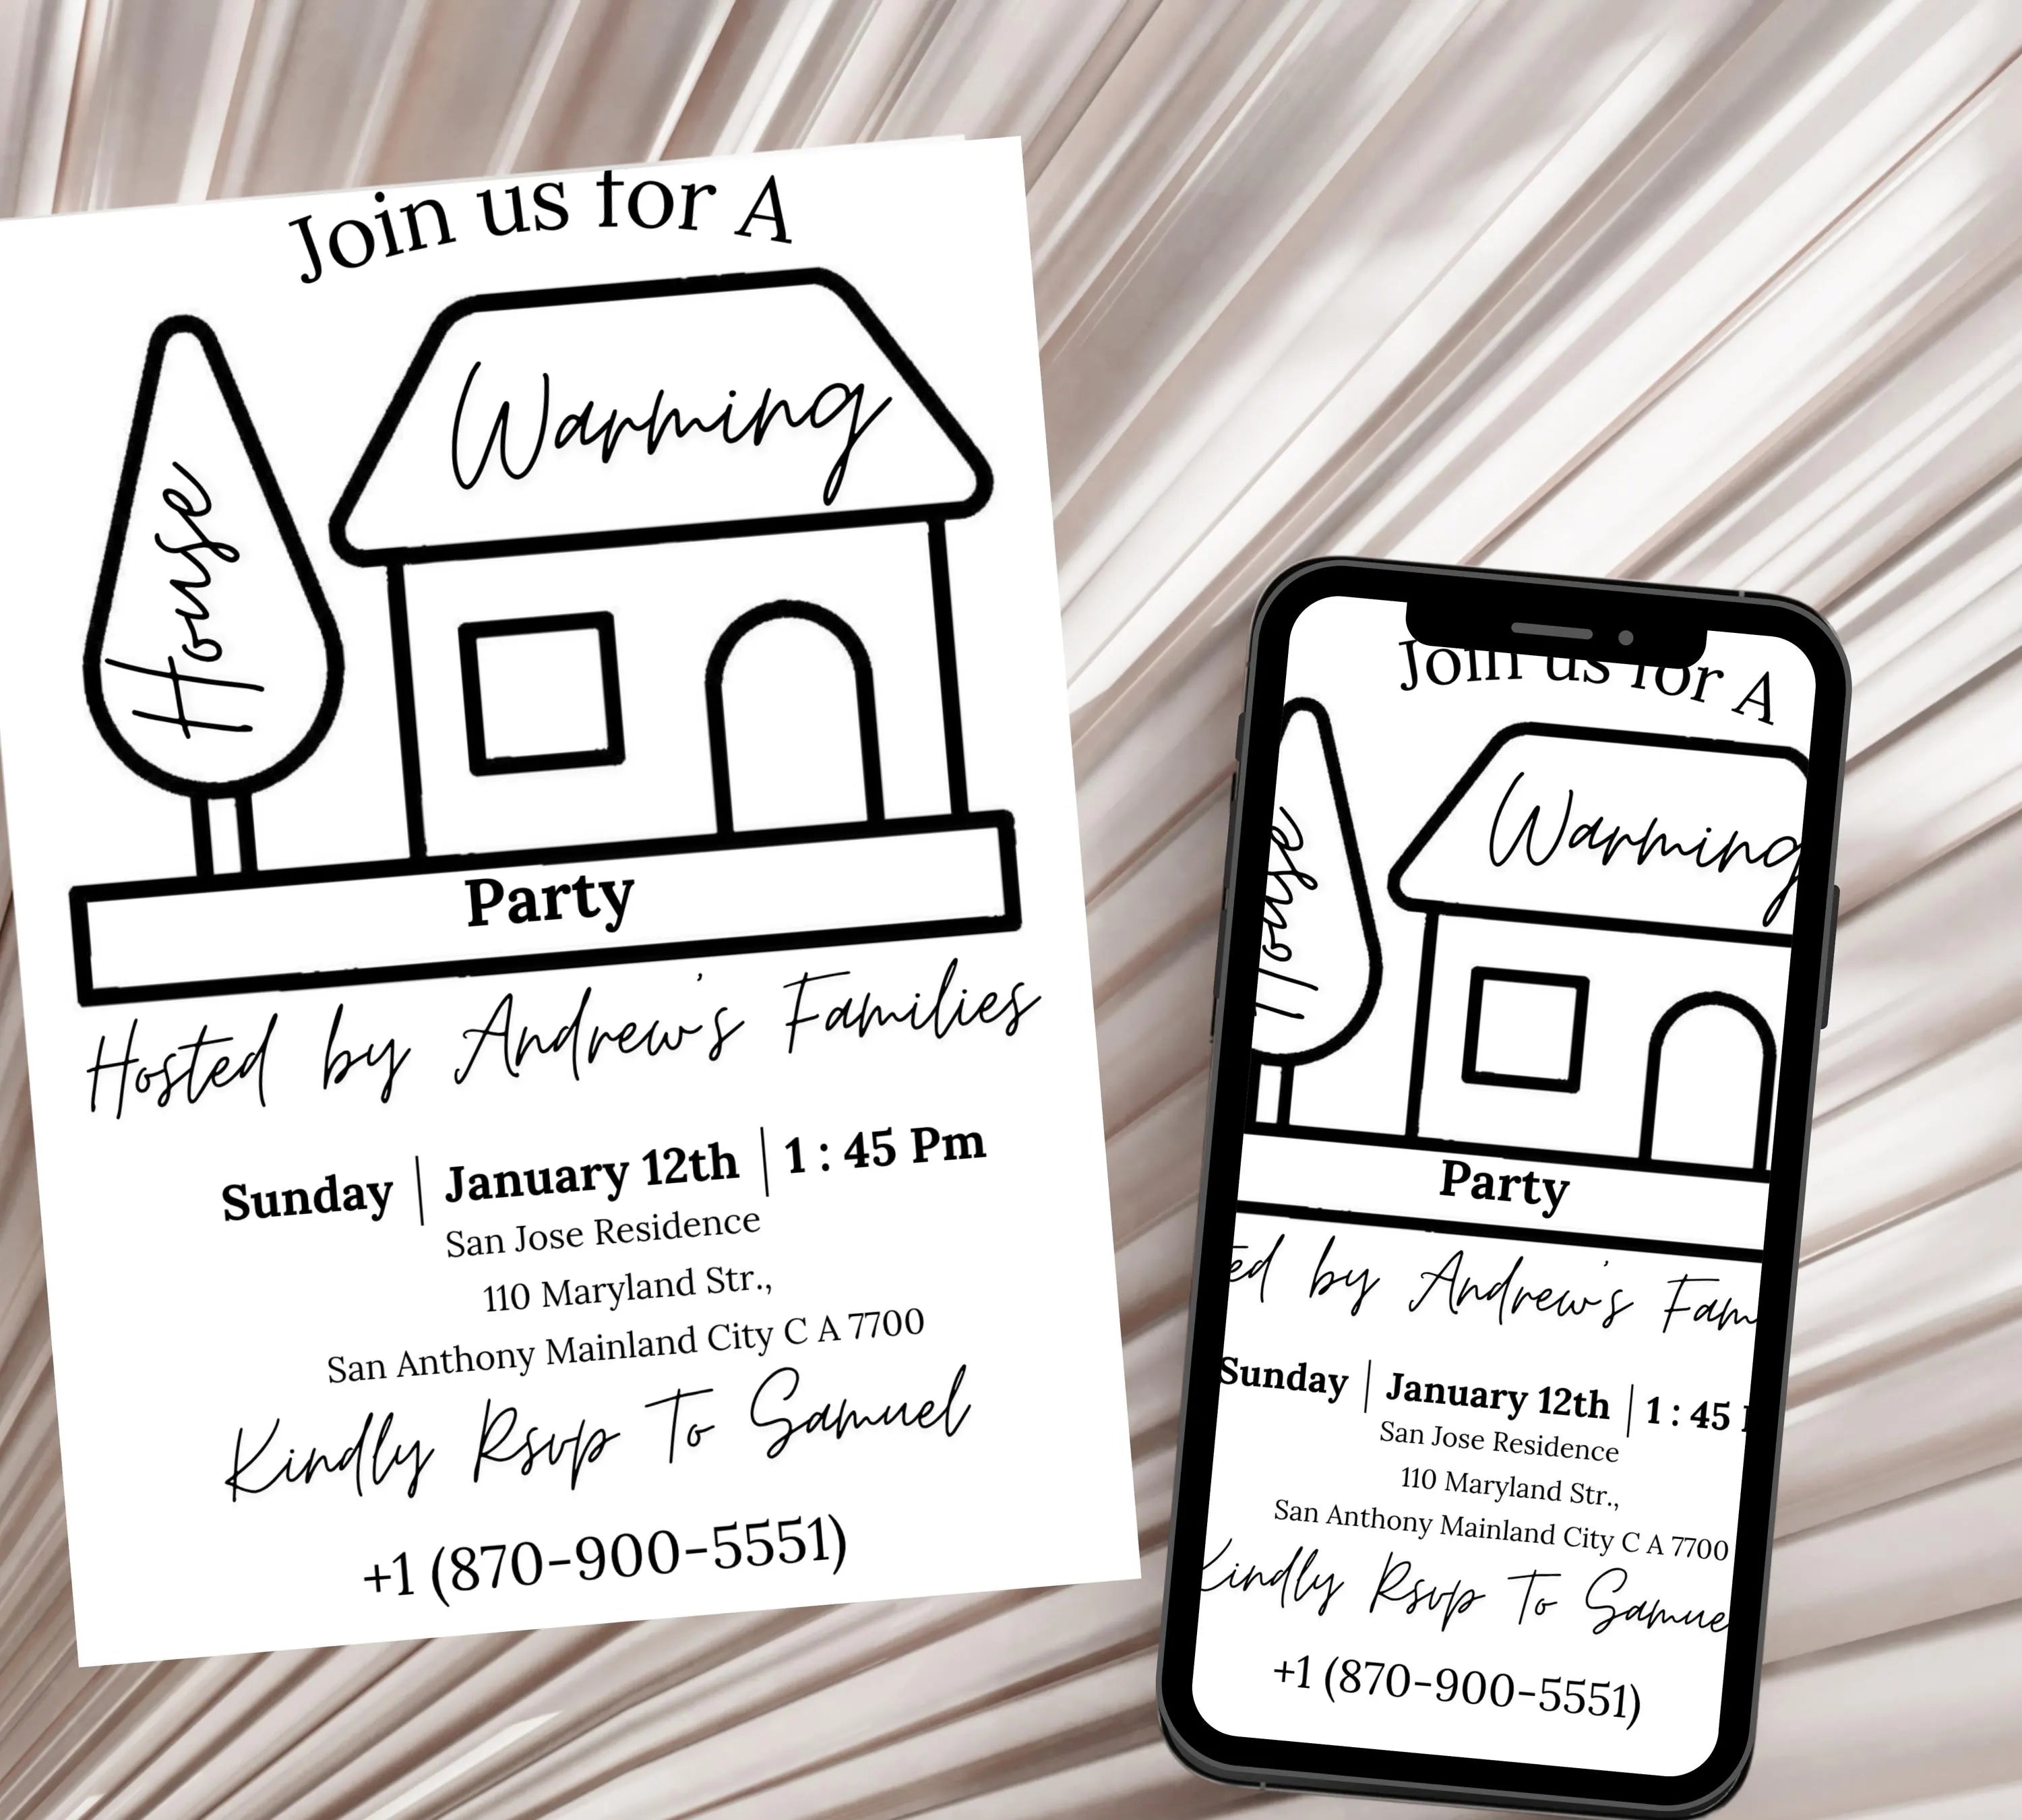 Join us for A
House
Warming
Party
Hosted by Andrew's Families
Sunday | January 12th | 1 : 45 Pm
San Jose Residence
110 Maryland Str.,
San Anthony Mainland City C A 7700
Kindly Rsvp To Samuel
+1 (870-900-5551)
Join us for A
House
Warming
Party
ed by Andrew's Fam
Sunday | January 12th | 1 : 45
San Jose Residence
110 Maryland Str.,
San Anthony Mainland City C A 7700
Kindly Rsvp To Samue
+1 (870-900-5551)